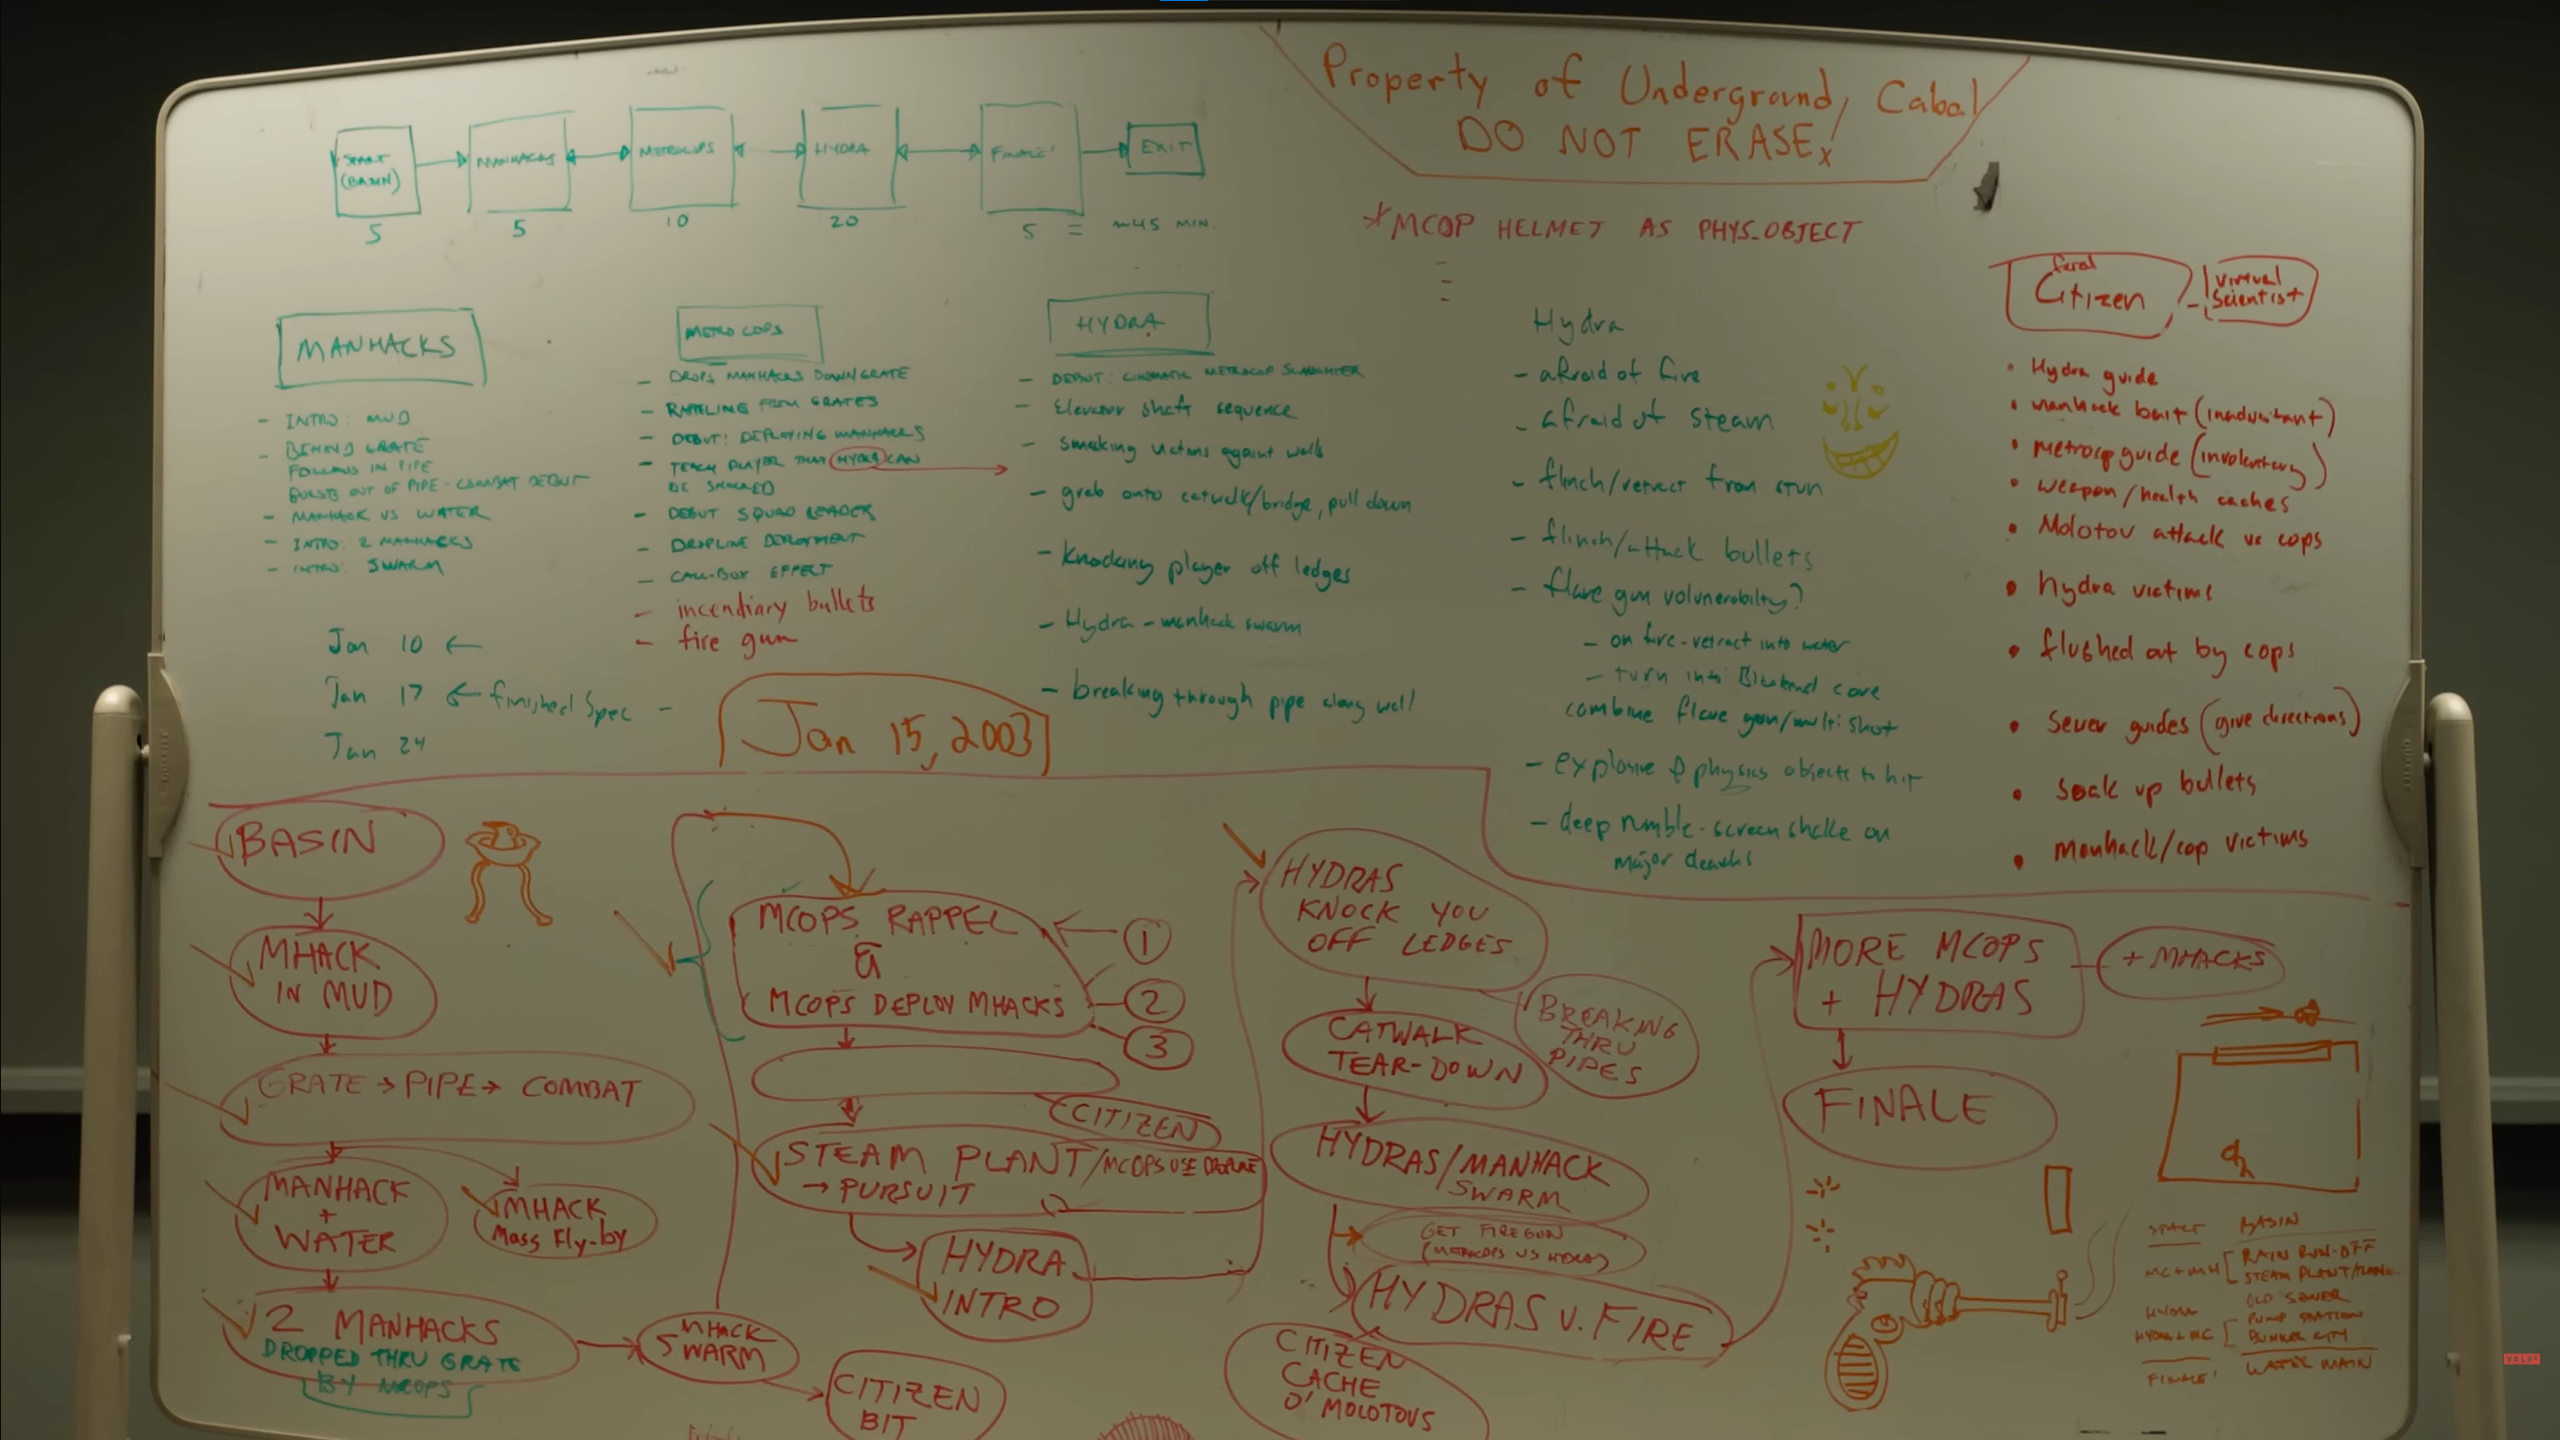 Property of Underground Cabal
DO NOT ERASE!
START
(BASIN)
MANHACKS
METROCOPS
HYDRA
FINALE!
EXIT
5
5
10
20
5 = ~45 MIN.
*MCOP HELMET AS PHYS_OBJECT
MANHACKS
- INTRO: MUD
- BEHIND GRATE
FOLLOWS IN PIPE
BURSTS OUT OF PIPE - COMBAT DEBUT
- MANHACK VS WATER
- INTRO: 2 MANHACKS
- INTRO: SWARM
Jan 10 ←
Jan 17 ← finished Spec -
Jan 24
METROCOPS
- DROPS MANHACKS DOWN GRATE
- RAPELING FROM GRATES
- DEBUT: DEPLOYING MANHACKS
- TEACH PLAYER THAT HYDRA CAN
BE SHOCKED
- DEBUT SQUAD LEADER
- DROPLINE DEPLOYMENT
- CALL-BOX EFFECT
- incendiary bullets
- fire gun
HYDRA
- DEBUT: CINEMATIC METROCOP SLAUGHTER
- Elevator shaft sequence
- smacking victims against walls
- grab onto catwalk/bridge, pull down
- knocking player off ledges
- Hydra - manhack swarm
- breaking through pipe along wall
Hydra
- afraid of fire
- afraid of steam
- flinch/retract from stun
- flinch/attack bullets
- flare gun volunerability?
- on fire - retract into water
- turn into
combine flare gun/multi shot
- explosive & physics objects to hit
- deep rumble - screen shake on
major deaths
feral
Citizen
virtual
Scientist
• Hydra guide
• manhack bait (inadvertant)
• metrocop guide (involentary)
• weapon/health caches
• Molotov attack vs cops
• hydra victims
• flushed out by cops
• Sewer guides (give directions)
• soak up bullets
• manhack/cop victims
Jan 15, 2003
BASIN
MHACK
IN MUD
GRATE → PIPE → COMBAT
MANHACK
+
WATER
MHACK
Mass Fly-by
2 MANHACKS
DROPPED THRU GRATE
BY MCOPS
MHACK
SWARM
CITIZEN
BIT
MCOPS RAPPEL
&
MCOPS DEPLOY MHACKS
1
2
3
CITIZEN
STEAM PLANT/MCOPS USE DROPLINE
→ PURSUIT
HYDRA
INTRO
HYDRAS
KNOCK YOU
OFF LEDGES
BREAKING
THRU
PIPES
CATWALK
TEAR-DOWN
HYDRAS/MANHACK
SWARM
GET FIREGUN
(METROCOPS VS HYDRA)
HYDRAS V. FIRE
CITIZEN
CACHE
O' MOLOTOVS
MORE MCOPS
+ HYDRAS
+ MHACKS
FINALE
START BASIN
MC+MH [ RAIN RUN-OFF
STEAM PLANT/
HYDRA OLD SEWER
HYDRA & MC [ PUMP STATION
BUNKER CITY
FINALE! WATER MAIN
VALVE